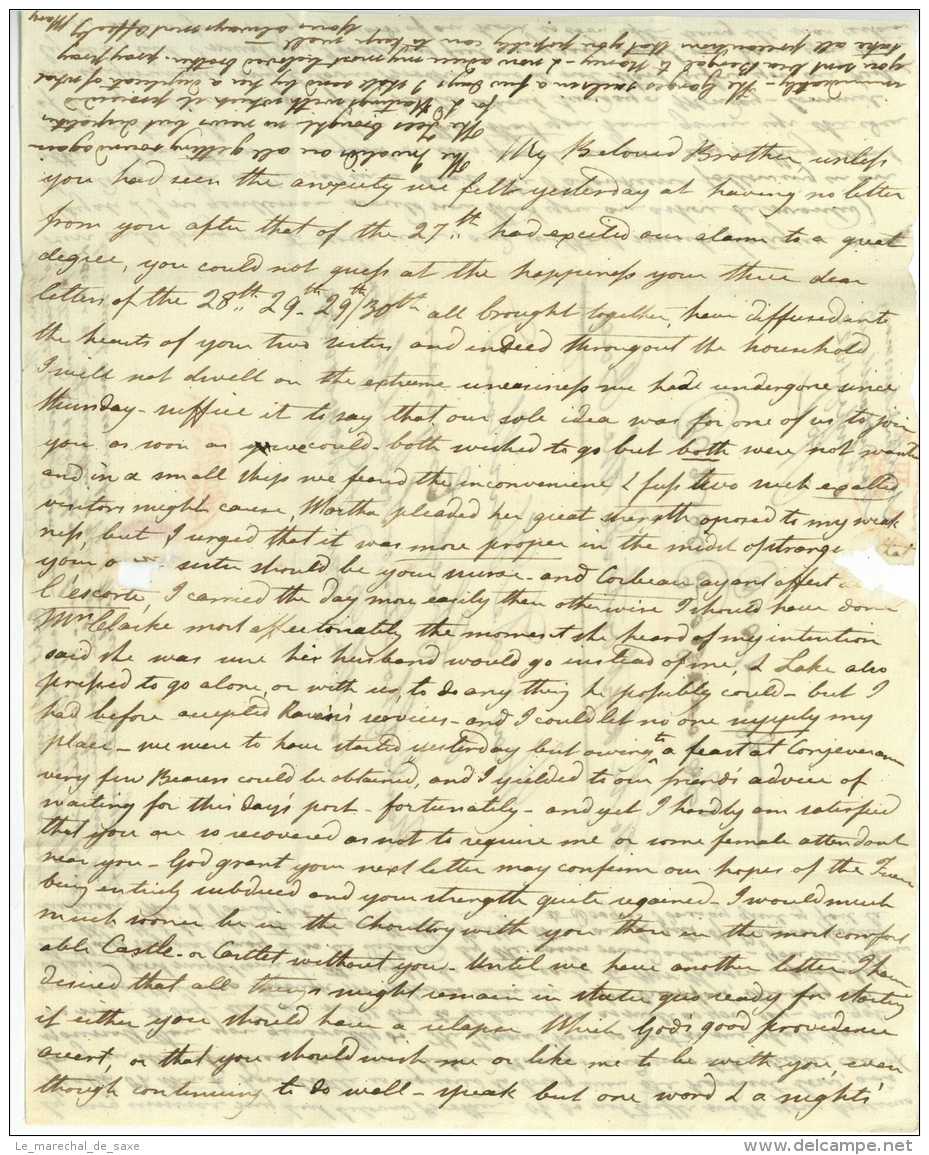 My Beloved Brother unless
you had seen the anxiety we felt yesterday at having no letter
from you after that of the 27th had excited our alarm to a great
degree, you could not guess at the happiness your three dear
letters of the 28th 29th 29th/30th all brought together, have diffused into
the hearts of your two sisters and indeed throughout the household
I will not dwell on the extreme uneasiness we had undergone since
thursday - suffice it to say that our sole idea was for one of us to join
you as soon as we could - both wished to go but both were not wanted
and in a small ship we feared the inconvenience & fuss two such
visitors might cause, Martha pleaded her great strength oposed to my weak
ness, but I urged that it was more proper in the midst of strange
your own sister should be your nurse - and Corbeau ayant offert
l'escorte, I carried the day more easily than otherwise I should have done
Mrs. Clarke most affectionately the moment she heard of my intention
said she was sure her husband would go instead of me, & Lake also
pressed to go alone, or with us, to do any thing he possibly could - but I
had before accepted Raven's services - and I could let no one supply my
place - we were to have started yesterday but owing to a feast at Conjeveram
very few Bearers could be obtained, and I yielded to our friends advice of
waiting for this day's post - fortunately - and yet I hardly am satisfied
that you are so recovered as not to require me or some female attendant
near you - God grant your next letter may confirm our hopes of the Fever
being entirely subdued and your strength quite regained - I would much
much sooner be in the Choultry with you than in the most comfort
able Castle - or Castlet without you - Until we have another letter I have
desired that all things might remain in statu quo ready for starting
if either you should have a relapse Which God's good providence
avert, or that you should wish me or like me to be with you, even
though continuing to do well - speak but one word & a nights'
The Invalids are all getting round again
The Fees brought no news but duplicates
for Ld Hastings with which it proceeded
immediately - The Ganges sails in a few days I shall send by her a duplicate of what
you sent via Bengal to Money - & now adieu my most beloved brother. pray pray
take all precautions that you possibly can to keep well -
Yours always most affectly
Mary
Le_marechal_de_saxe
www.delcampe.net